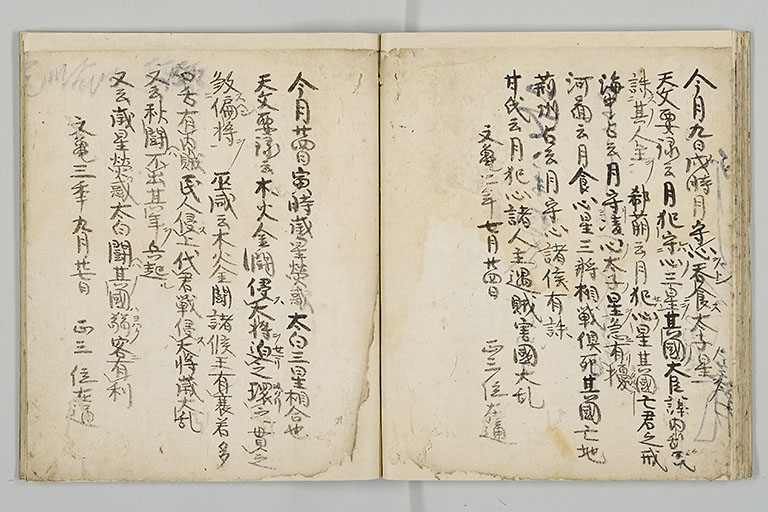 今月九日戌時月守心呑食太子星
天文要録云月犯守心三星其國大臣謀内乱
誅其人主 郗萌云月犯心星其國亡君之戒
海中占云月守凌心太子星忌有擾
河圖云月食心星三將相戦俱死其國亡地
荊州占云月守心諸侯有誅
甘氏云月犯心諸人主遇賊害國大乱
文亀二年七月廿四日 正三位在通
今月廿四日寅時歳星熒惑太白三星相合也
天文要録云木火金闘侵大將迫之環之貫之
敓偏将 巫咸云木火金闘諸候王有喪者多
又云有内賊民人侵上代君戦侵天将蔵大乱
又云秋闘不出其年兵起
又云歳星熒惑太白闘其國弱客有利
文亀三年九月廿日 正三位在通